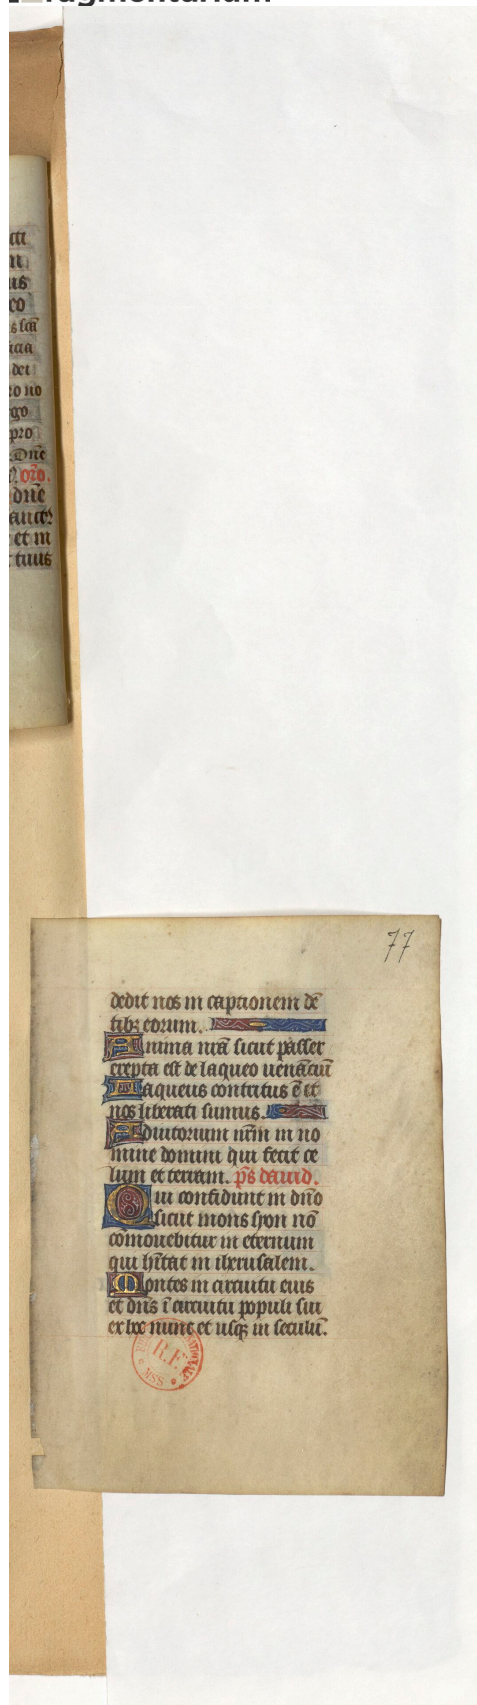 fragmentarium
us
eo
dei
ro no
go
pro
Dne
oro.
dne
et in
tuus
77
dedit nos in captionem dē
tibꝫ eorum.
Anima nrā sicut passer
erepta est de laqueo uenāciū
Laqueus contritus ē et
nos liberati sumus.
Adiutorium nrm in no
mine domini qui fecit ce
lum et terram. ps dauid.
Qui confidunt in dno
sicut mons syon nō
cōmouebitur in eternum
qui hitat in iherusalem.
Montes in circuitu eius
et dns ī circuitu populi sui
ex hoc nunc et usqꝫ in seculū.
R.F.
MSS